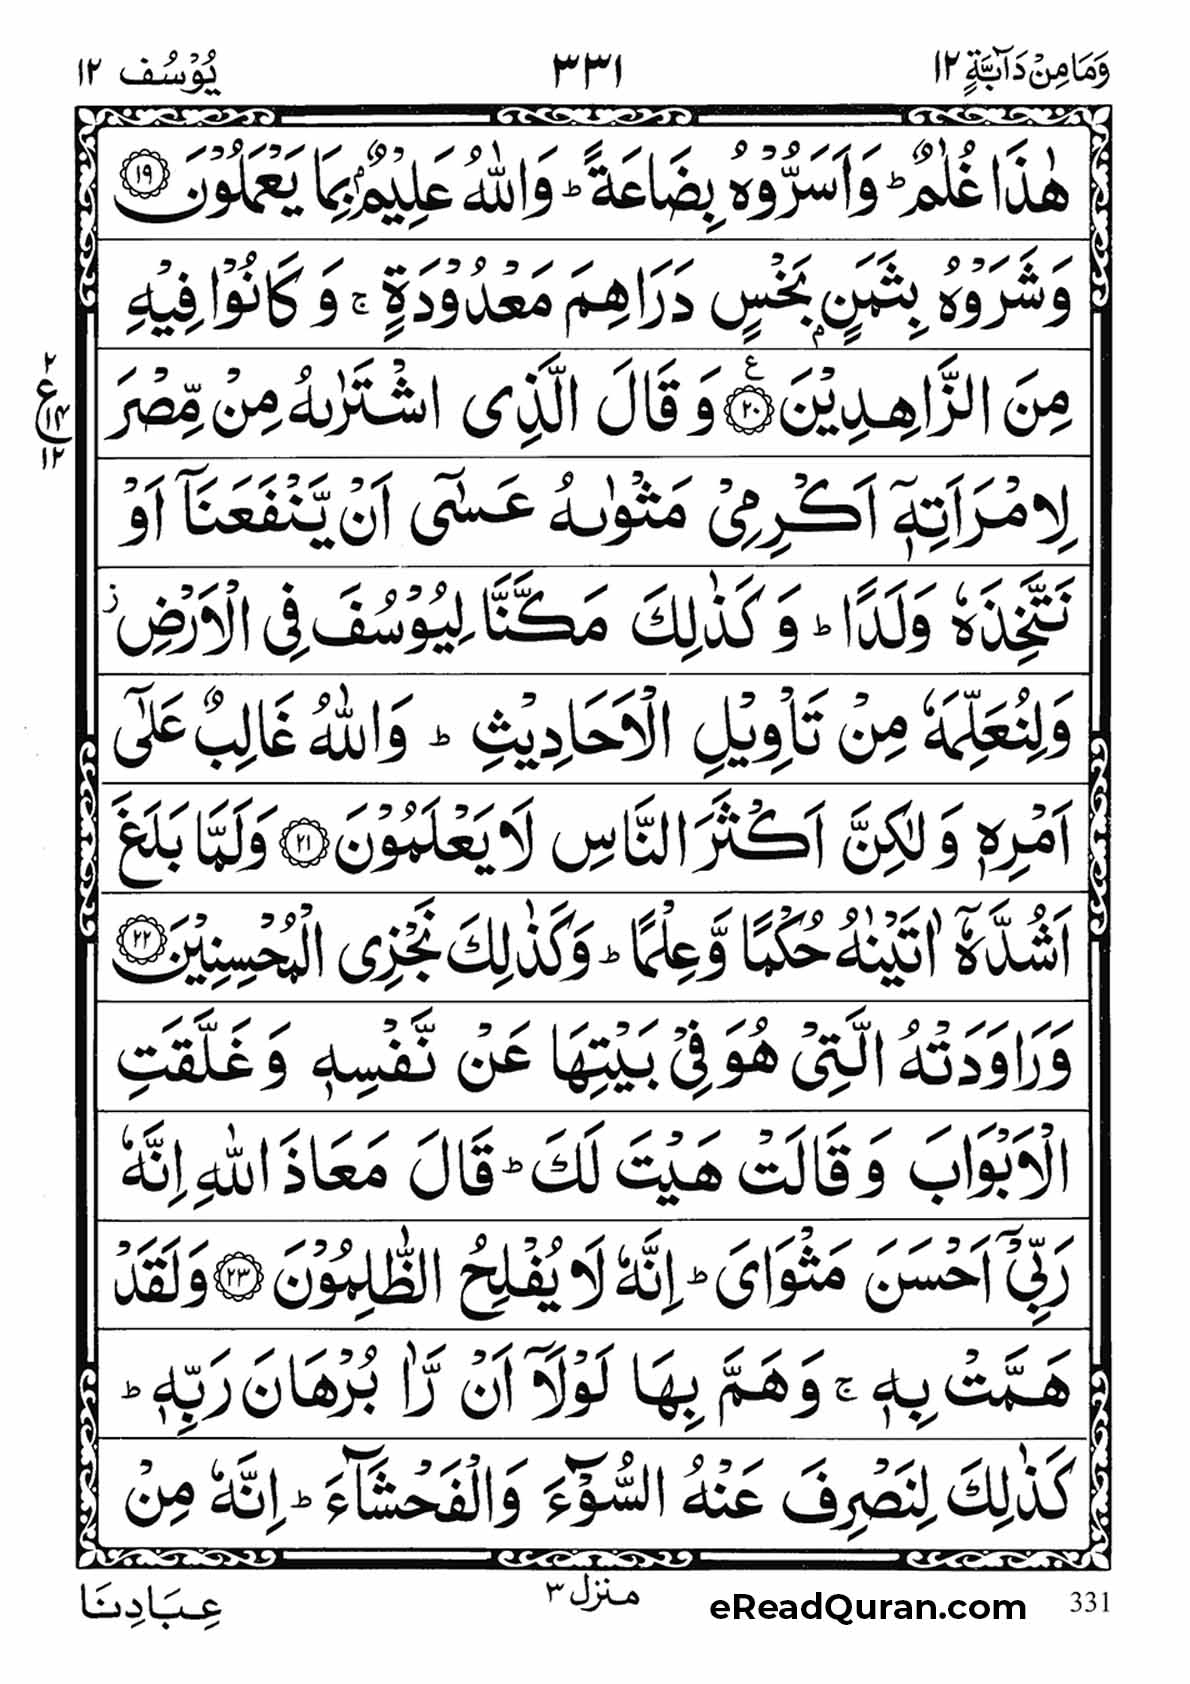 وَمَا مِنْ دَآبَّةٍ ١٢ ٣٣١ يُوْسُف ١٢
هٰذَا غُلٰمٌ ؕ وَاَسَرُّوْهُ بِضَاعَةً ؕ وَاللّٰهُ عَلِيْمٌۢ بِمَا يَعْمَلُوْنَ ١٩
وَشَرَوْهُ بِثَمَنٍۭ بَخْسٍ دَرَاهِمَ مَعْدُوْدَةٍ ۚ وَ كَانُوْا فِيْهِ
مِنَ الزَّاهِدِيْنَ ٢٠ ع وَ قَالَ الَّذِى اشْتَرٰىهُ مِنْ مِّصْرَ
٢ ع ١٤ ١٢
لِامْرَاَتِهٖۤ اَكْرِمِىْ مَثْوٰىهُ عَسٰٓى اَنْ يَّنْفَعَنَاۤ اَوْ
نَتَّخِذَهٗ وَلَدًا ؕ وَ كَذٰلِكَ مَكَّنَّا لِيُوْسُفَ فِى الْاَرْضِ ز
وَلِنُعَلِّمَهٗ مِنْ تَاْوِيْلِ الْاَحَادِيْثِ ؕ وَاللّٰهُ غَالِبٌ عَلٰٓى
اَمْرِهٖ وَ لٰكِنَّ اَكْثَرَ النَّاسِ لَا يَعْلَمُوْنَ ٢١ وَلَمَّا بَلَغَ
اَشُدَّهٗۤ اٰتَيْنٰهُ حُكْمًا وَّعِلْمًا ؕ وَكَذٰلِكَ نَجْزِى الْمُحْسِنِيْنَ ٢٢
وَرَاوَدَتْهُ الَّتِىْ هُوَ فِىْ بَيْتِهَا عَنْ نَّفْسِهٖ وَ غَلَّقَتِ
الْاَبْوَابَ وَ قَالَتْ هَيْتَ لَكَ ؕ قَالَ مَعَاذَ اللّٰهِ اِنَّهٗ
رَبِّىْۤ اَحْسَنَ مَثْوَاىَ ؕ اِنَّهٗ لَا يُفْلِحُ الظّٰلِمُوْنَ ٢٣ وَلَقَدْ
هَمَّتْ بِهٖ ۚ وَهَمَّ بِهَا لَوْلَاۤ اَنْ رَّاٰ بُرْهَانَ رَبِّهٖ ؕ
كَذٰلِكَ لِنَصْرِفَ عَنْهُ السُّوْٓءَ وَالْفَحْشَآءَ ؕ اِنَّهٗ مِنْ
عِبَادِنَا منزل ٣ eReadQuran.com 331